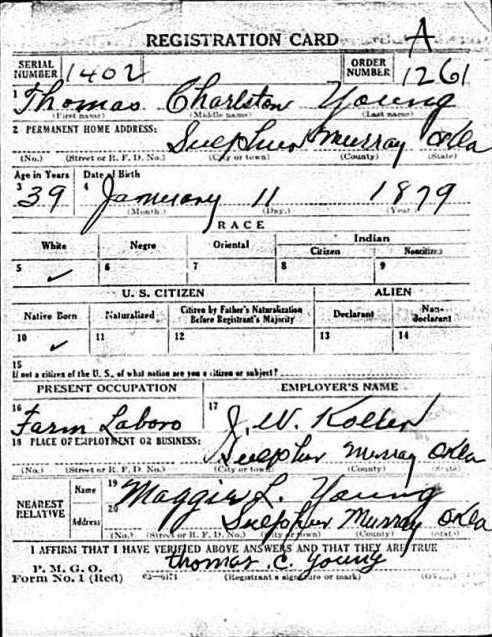 A
REGISTRATION CARD
SERIAL NUMBER 1402 ORDER NUMBER 1261
1 Thomas Charlston Young
(First name) (Middle name) (Last name)
2 PERMANENT HOME ADDRESS: Sulphur Murray Okla
(No.) (Street or R. F. D. No.) (City or town) (County) (State)
Age in Years Date of Birth
3 39 4 January 11 1879
(Month.) (Day.) (Year.)
RACE
White Negro Oriental Indian
Citizen Noncitizen
5 ✓ 6 7 8 9
U. S. CITIZEN ALIEN
Native Born Naturalized Citizen by Father's Naturalization Before Registrant's Majority Declarant Non-declarant
10 ✓ 11 12 13 14
15
If not a citizen of the U. S., of what nation are you a citizen or subject?
PRESENT OCCUPATION EMPLOYER'S NAME
16 Farm Labor 17 J. W.
18 PLACE OF EMPLOYMENT OR BUSINESS: Sulpher Murray Okla
(No.) (Street or R. F. D. No.) (City or town) (County) (State)
NEAREST RELATIVE Name 19 Maggie L. Young
Address 20 Sulpher Murray Okla
(No.) (Street or R. F. D. No.) (City or town) (County) (State)
I AFFIRM THAT I HAVE VERIFIED ABOVE ANSWERS AND THAT THEY ARE TRUE
P. M. G. O. Thomas C. Young
Form No. 1 (Red) 03-6171 (Registrant's signature or mark)